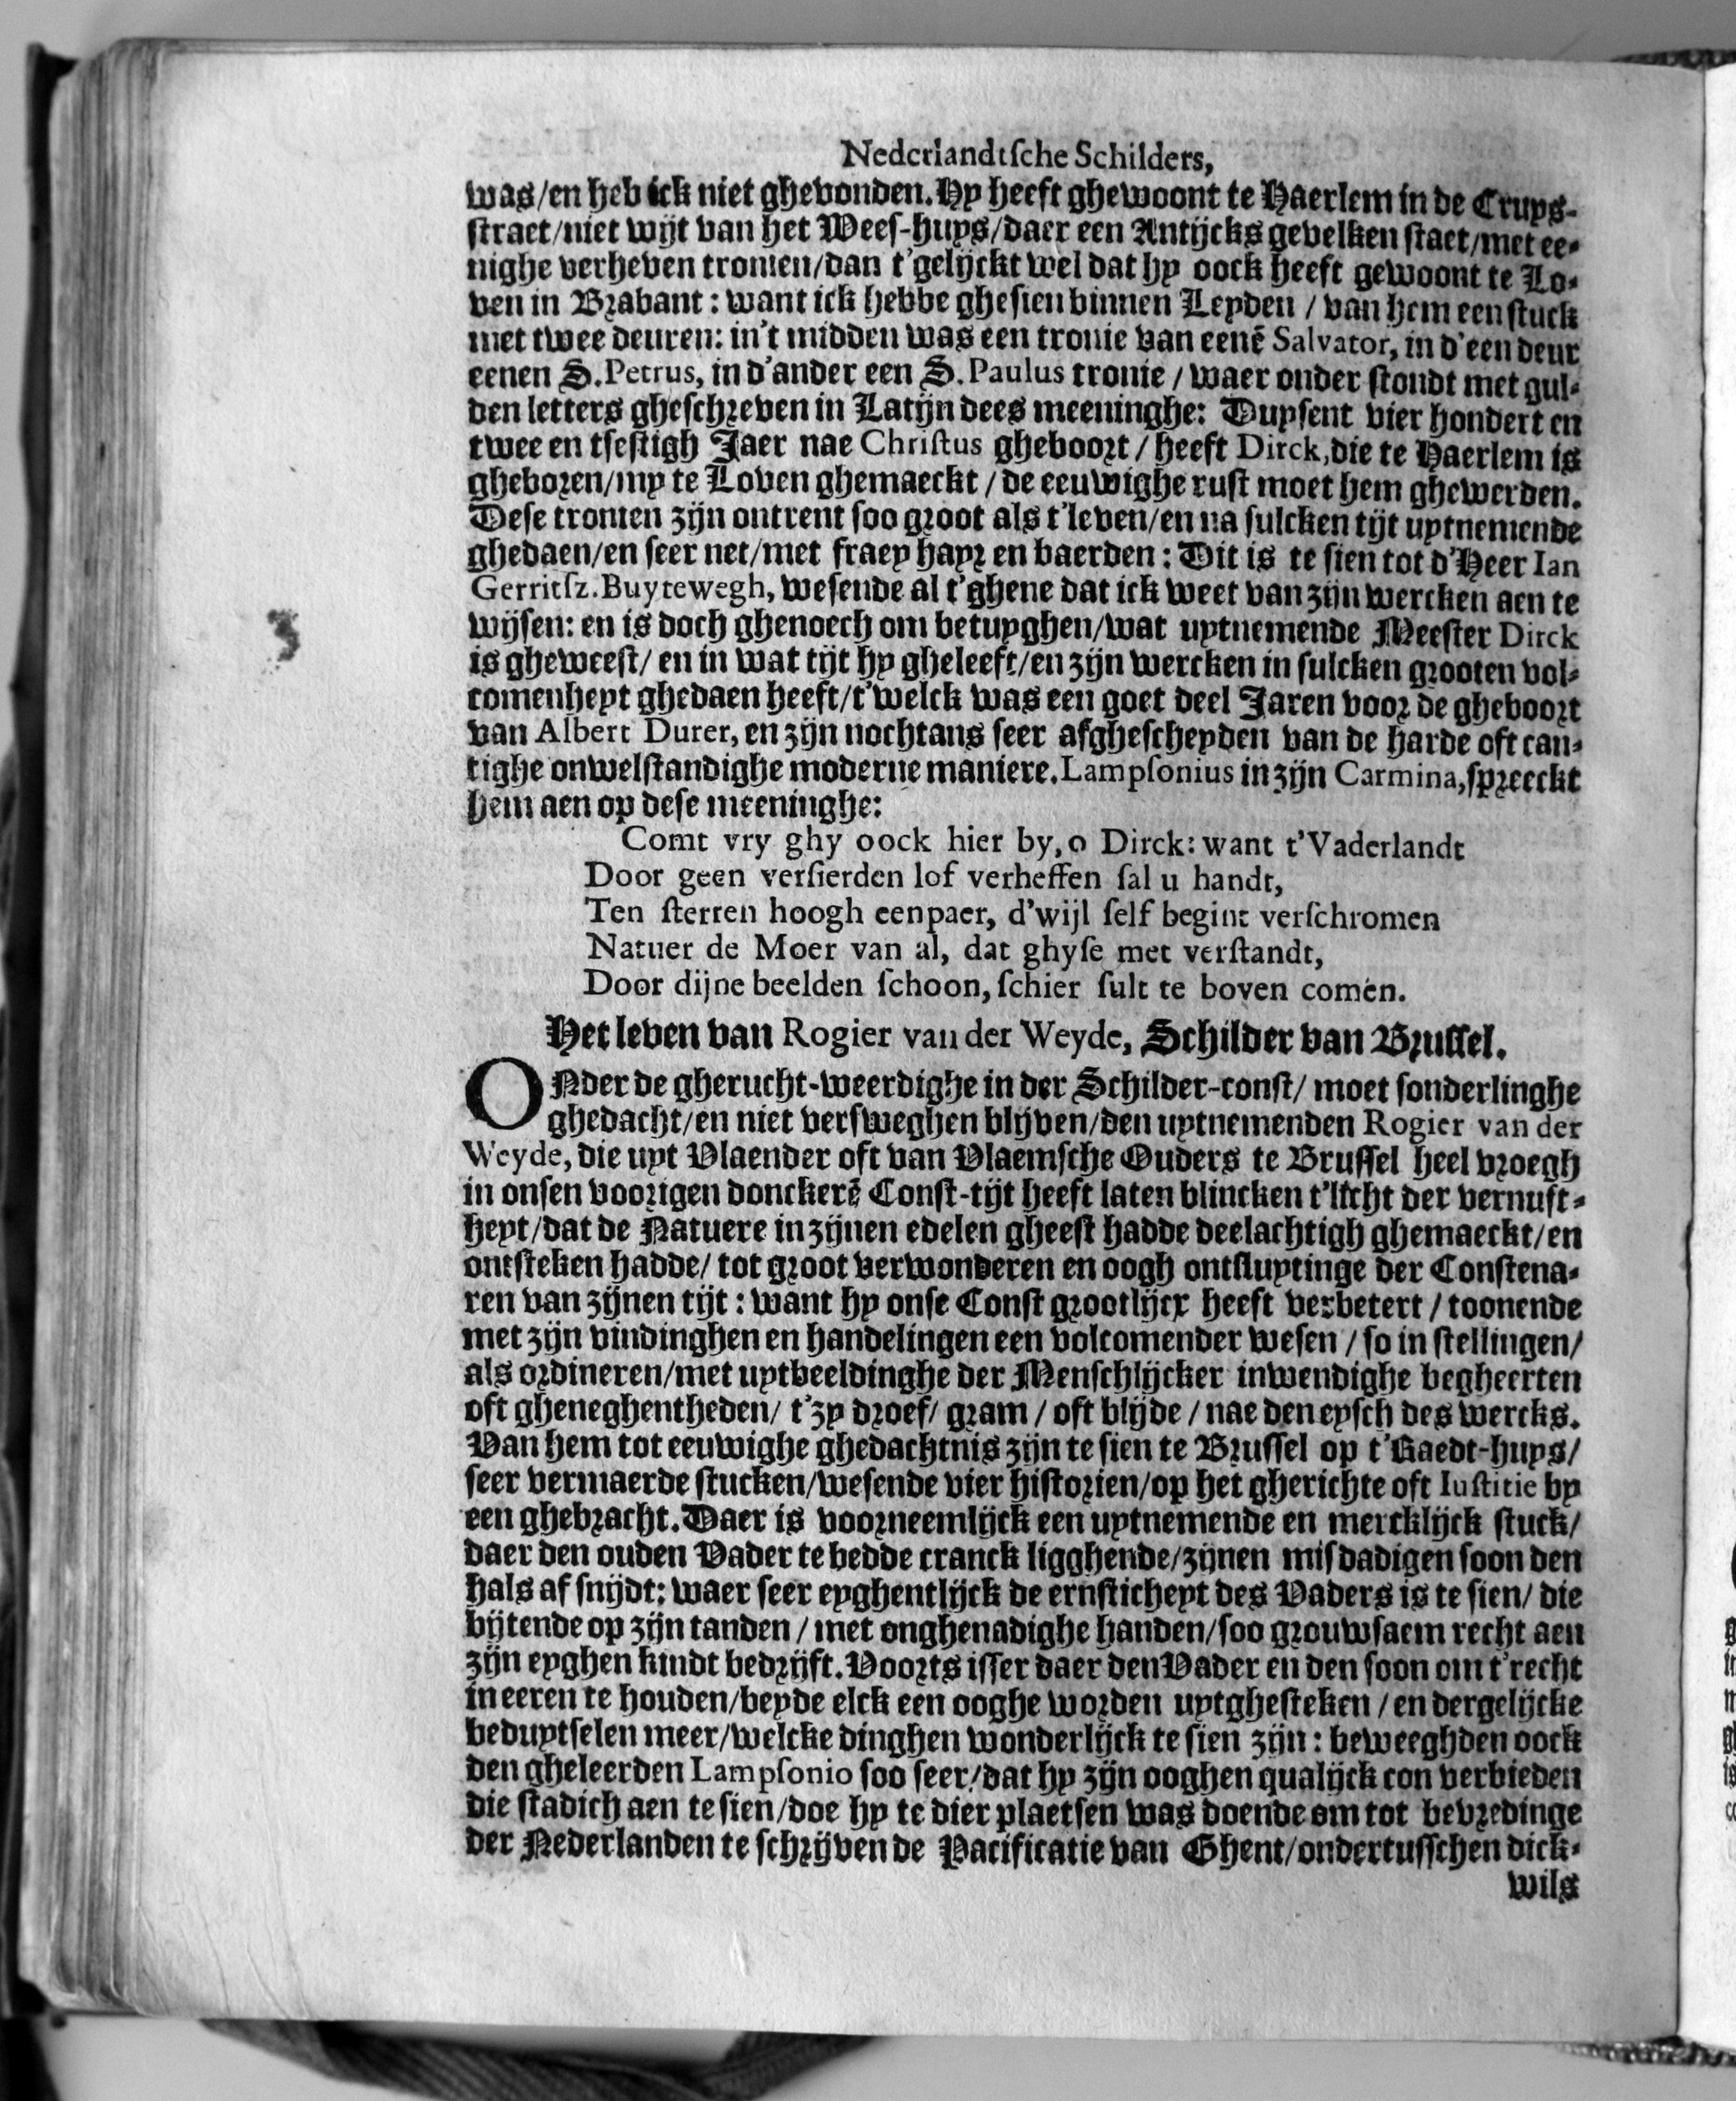 Nederlandtsche Schilders,
was/en heb ick niet ghevonden. Hy heeft ghewoont te Haerlem in de Cruys-
straet/niet wijt van het Wees-huys/daer een Antijcks gevelken staet/met ee-
nighe verheven tronien/dan t'gelijckt wel dat hy oock heeft gewoont te Lo-
ven in Brabant: want ick hebbe ghesien binnen Leyden / van hem een stuck
met twee deuren: in't midden was een tronie van eenẽ Salvator, in d'een deur
eenen S. Petrus, in d'ander een S. Paulus tronie / waer onder stondt met gul-
den letters gheschreven in Latijn dees meeninghe: Duysent vier hondert en
twee en tsestigh Jaer nae Christus gheboort / heeft Dirck, die te Haerlem is
gheboren/my te Loven ghemaeckt / de eeuwighe rust moet hem ghewerden.
Dese tronien zijn ontrent soo groot als t'leven/en na sulcken tijt uytnemende
ghedaen/en seer net/met fraey hayr en baerden: Dit is te sien tot d'Heer Ian
Gerritsz. Buytewegh, wesende al t'ghene dat ick weet van zijn wercken aen te
wijsen: en is doch ghenoech om betuyghen/wat uytnemende Meester Dirck
is gheweest/ en in wat tijt hy gheleeft/en zijn wercken in sulcken grooten vol-
comenheyt ghedaen heeft/t'welck was een goet deel Jaren voor de gheboort
van Albert Durer, en zijn nochtans seer afghescheyden van de harde oft can-
tighe onwelstandighe moderne maniere. Lampsonius in zijn Carmina, spreeckt
hem aen op dese meeninghe:
Comt vry ghy oock hier by, o Dirck: want t'Vaderlandt
Door geen versierden lof verheffen sal u handt,
Ten sterren hoogh eenpaer, d'wijl self begint verschromen
Natuer de Moer van al, dat ghyse met verstandt,
Door dijne beelden schoon, schier sult te boven comen.
Het leven van Rogier van der Weyde, Schilder van Brussel.
ONder de gherucht-weerdighe in der Schilder-const/ moet sonderlinghe
ghedacht/en niet versweghen blijven/den uytnemenden Rogier van der
Weyde, die uyt Vlaender oft van Vlaemsche Ouders te Brussel heel vroegh
in onsen voorigen donckerẽ Const-tijt heeft laten blincken t'licht der vernuft-
heyt/dat de Natuere in zijnen edelen gheest hadde deelachtigh ghemaeckt/en
ontsteken hadde/ tot groot verwonderen en oogh ontsluytinge der Constena-
ren van zijnen tijt: want hy onse Const grootlijcx heeft verbetert / toonende
met zijn vindinghen en handelingen een volcomender wesen / so in stellingen/
als ordineren/met uytbeeldinghe der Menschlijcker inwendighe begheerten
oft gheneghentheden/ t'zy droef/ gram / oft blijde / nae den eysch des wercks.
Van hem tot eeuwighe ghedachtnis zijn te sien te Brussel op t'Raedt-huys/
seer vermaerde stucken/wesende vier historien/op het gherichte oft Iustitie by
een ghebracht. Daer is voorneemlijck een uytnemende en mercklijck stuck/
daer den ouden Vader te bedde cranck ligghende/zijnen misdadigen soon den
hals af snijdt: waer seer eyghentlijck de ernsticheyt des Vaders is te sien/ die
bijtende op zijn tanden / met onghenadighe handen/soo grouwsaem recht aen
zijn eyghen kindt bedrijft. Voorts isser daer den Vader en den soon om t'recht
in eeren te houden/beyde elck een ooghe worden uytghesteken / en dergelijcke
beduytselen meer/welcke dinghen wonderlijck te sien zijn: beweeghden oock
den gheleerden Lampsonio soo seer/dat hy zijn ooghen qualijck con verbieden
die stadich aen te sien/doe hy te dier plaetsen was doende om tot bevredinge
der Nederlanden te schrijven de Pacificatie van Ghent/ondertusschen dick-
wils